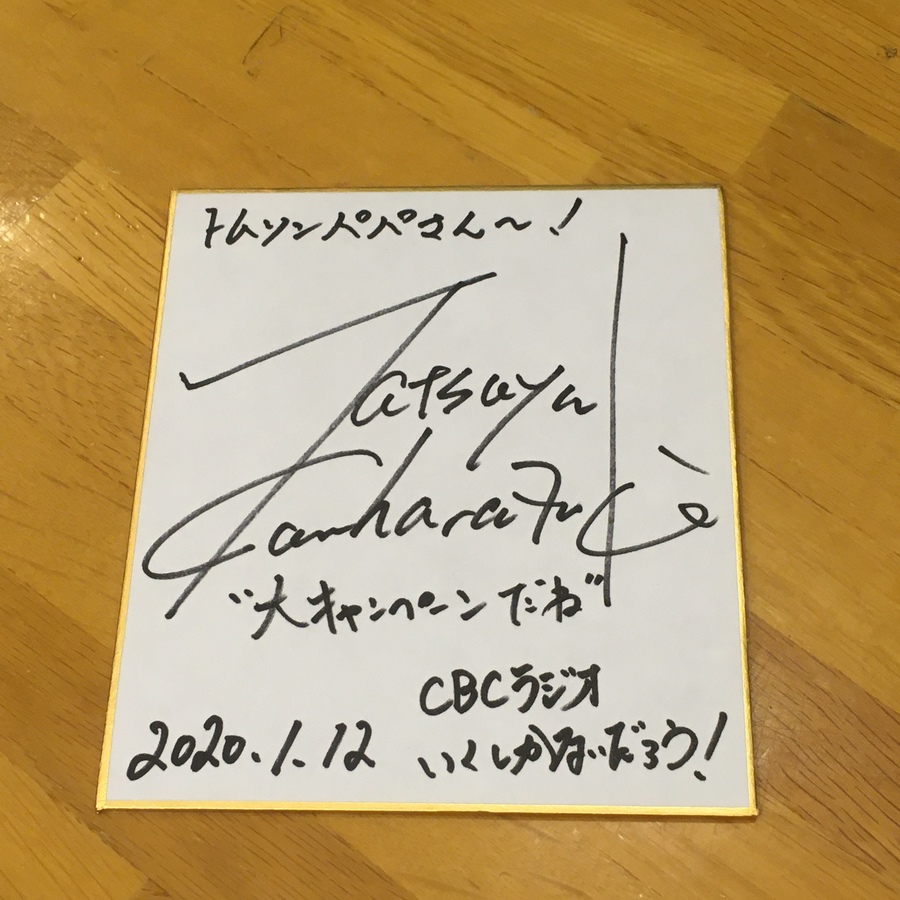 トムソンパパさん〜!
Tatsuya
"大キャンペーンだね"
CBCラジオ
2020.1.12 いくしかないだろう!